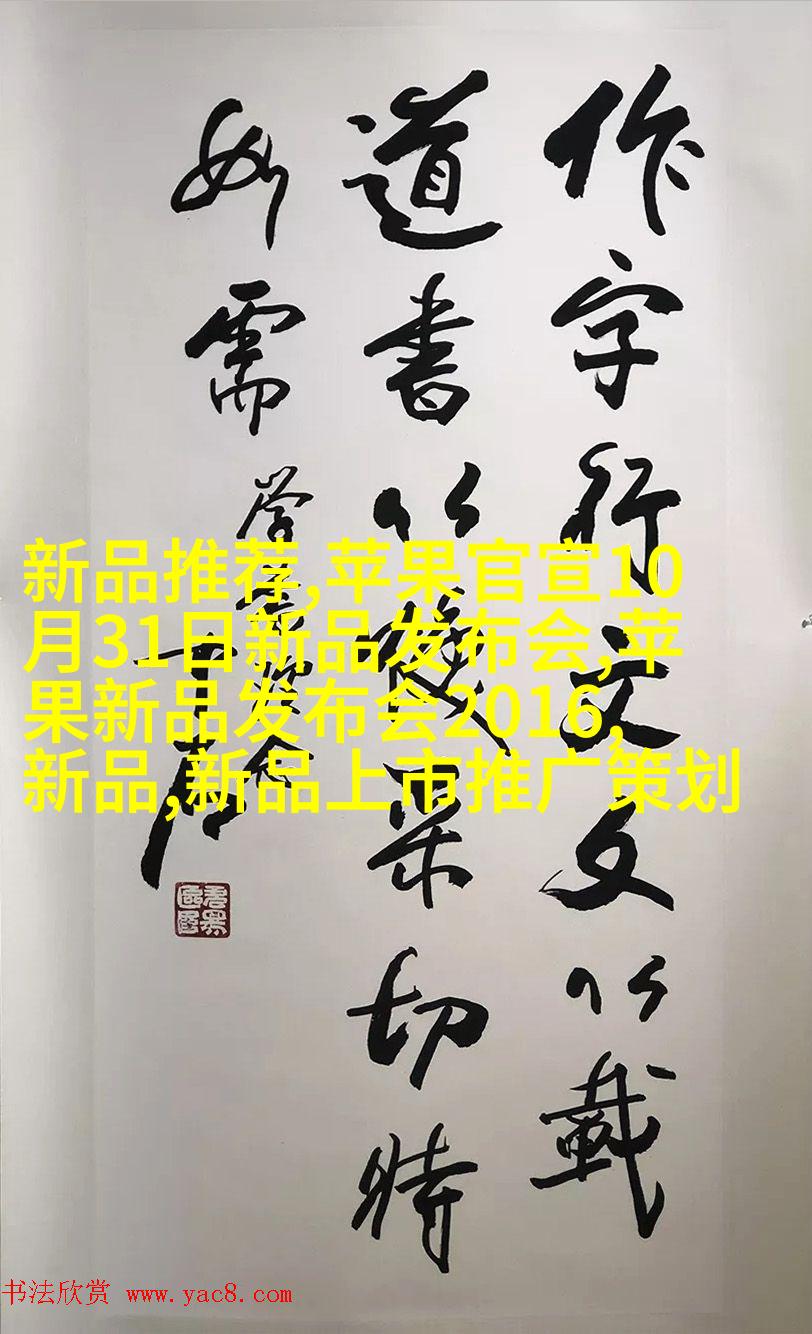 作字行文文以載
道書以采切時
如需
新品推荐,苹果官宣10
月31日新品发布会,苹
果新品发布会2016,
新品,新品上市推广策划
书法欣赏 www.yac8.com